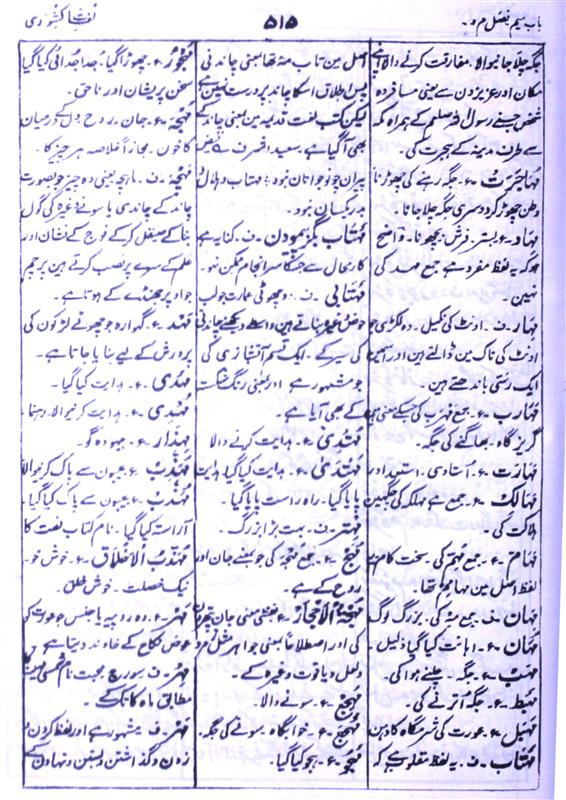 باب میم فصل م و۔
۵۱۵
لغات کشوری
جگہ چلا جانیوالا۔ مفارقت کرنے والا اپنے
مکان اور عزیزون سے یعنی مسافر وہ
شخص جسنے رسول اللہ صلعم کے ہمراہ مکہ
سے طرف مدینہ کے ہجرت کی۔
مہاجرت۔ ع۔ جگہ رہنے کی چھوڑنا
وطن چھوڑ کر دوسری جگہ چلا جانا۔
مہاد۔ ع۔ بستر۔ فرش۔ بچھونا۔ واضح
ہو کہ یہ لفظ مفرد ہے جمع مہد کی
نہین۔
مہار۔ ف۔ اونٹ کی نکیل۔ وہ لکڑی جو
اونٹ کی ناک مین ڈالتے ہین اور اُسمین
ایک رسّی باندھتے ہین۔
مہارب۔ ع۔ جمع مہرب کی جسکے معنی
گریز گاہ۔ بھاگنے کی جگہ۔
مہارت۔ ع۔ اُستادی۔ استعداد
مہالک۔ ع۔ جمع ہے مہلکہ کی جگہین
ہلاکت کی۔
مہام۔ ع۔ جمع مہم کی۔ سخت کام
لفظ اصل مین مہامم تھا۔
مہان۔ ف۔ جمع مہ کی۔ بزرگ لوگ
مہان۔ ع۔ اہانت کیا گیا۔ ذلیل۔
مہب۔ ع۔ جگہ۔ چلنے ہوا کی۔
مہبط۔ ع۔ جگہ اُترنے کی۔
مہبل۔ ع۔ عورت کی شرمگاہ کا دہن
مہتاب۔ ف۔ یہ لفظ مقلوب ہے کہ
اصل مین تاب مہ تھا بمعنی چاندنی
پس اطلاق اسکا چاند پر درست نہین ہے
لیکن کتب لغت قدیمہ مین بمعنی چاند کے
بھی آ گیا ہے۔ سعید اشرف
پیران چو جوانان نبود۔ مہتاب و ہلال
بدریکسان نبود۔
مہتاب بگز پیمودن۔ ف۔ کنایہ ہے
کار محال سے جسکا سرانجام ممکن نہو۔
مہتابی۔ ف۔ وہ چھوٹی عمارت جو لب
حوض وغیرہ بناتے ہین واسطے دیکھنے چاندنی
کی سیر کے۔ ایک قسم آتشبازی کی
جو مشہور ہے اور بمعنی رنگ شکستہ
کے بھی آیا ہے۔
مہتدی۔ ع۔ ہدایت کرنے والا
مہتدی۔ ع۔ ہدایت کیا گیا۔ ہدایت
پایا گیا۔ راہ راست پایا گیا۔
مہتر۔ ف۔ بہت بڑا بزرگ۔
مہج۔ ع۔ جمع مہجہ کی جو بمعنی جان اور
روح کے ہے۔
مہجۃ الاحجار۔ ع۔ بمعنی جان پتھرون
کی اور اصطلاحاً بمعنی جواہر مثل زمرد
و لعل و یاقوت وغیرہ کے۔
مہجع۔ ع۔ سونے والا۔
مہجع۔ ع۔ خوابگاہ۔ سونے کی جگہ۔
مہجو۔ ع۔ ہجو کیا گیا۔
مہجور۔ ع۔ چھوڑا گیا۔ جدا۔ جدائی کیا گیا
سخن پریشان اور ناحق۔
مہجہ۔ ع۔ جان۔ روح۔ دل کے درمیان
کا خون۔ مجازاً خلاصہ ہر چیز کا۔
مہچہ۔ ف۔ ماہچہ یعنی وہ چیز جو بصورت
چاند کے چاندی یا سونے وغیرہ کی گول
بنا کے صیقل کر کے فوج کے نشان اور
علم کے سرے پر نصب کرتے ہین پرچم
جو اوپر جھنڈے کے ہوتا ہے۔
مہد۔ ع۔ گہوارہ جو چھوٹے لڑکون کی
پرورش کے لیے بنایا جاتا ہے۔
مہدی۔ ع۔ ہدایت کیا گیا۔
مہدی۔ ع۔ ہدایت کرنیوالا۔ رہنما۔
مہذار۔ ع۔ بیہودہ گو۔
مہذب۔ ع۔ عیبون سے پاک کرنیوالا
مہذب۔ ع۔ عیبون سے پاک کیا گیا۔
آراستہ کیا گیا۔ نام کتاب لغت کا
مہذب الاخلاق۔ ع۔ خوش خو۔
نیک خصلت۔ خوش خلق۔
مہر۔ ع۔ وہ روپیہ یا جنس جو عورت کو
عوض نکاح کے خاوند دیتا ہے
مہر۔ ف۔ سورج۔ محبت۔ نام شمسی مہینے
مطابق ماہ کاتک کے۔
مہر۔ ف۔ مشہور ہے اور لفظ کردن و
زدن و گذاشتن و بستن و نہادن کے